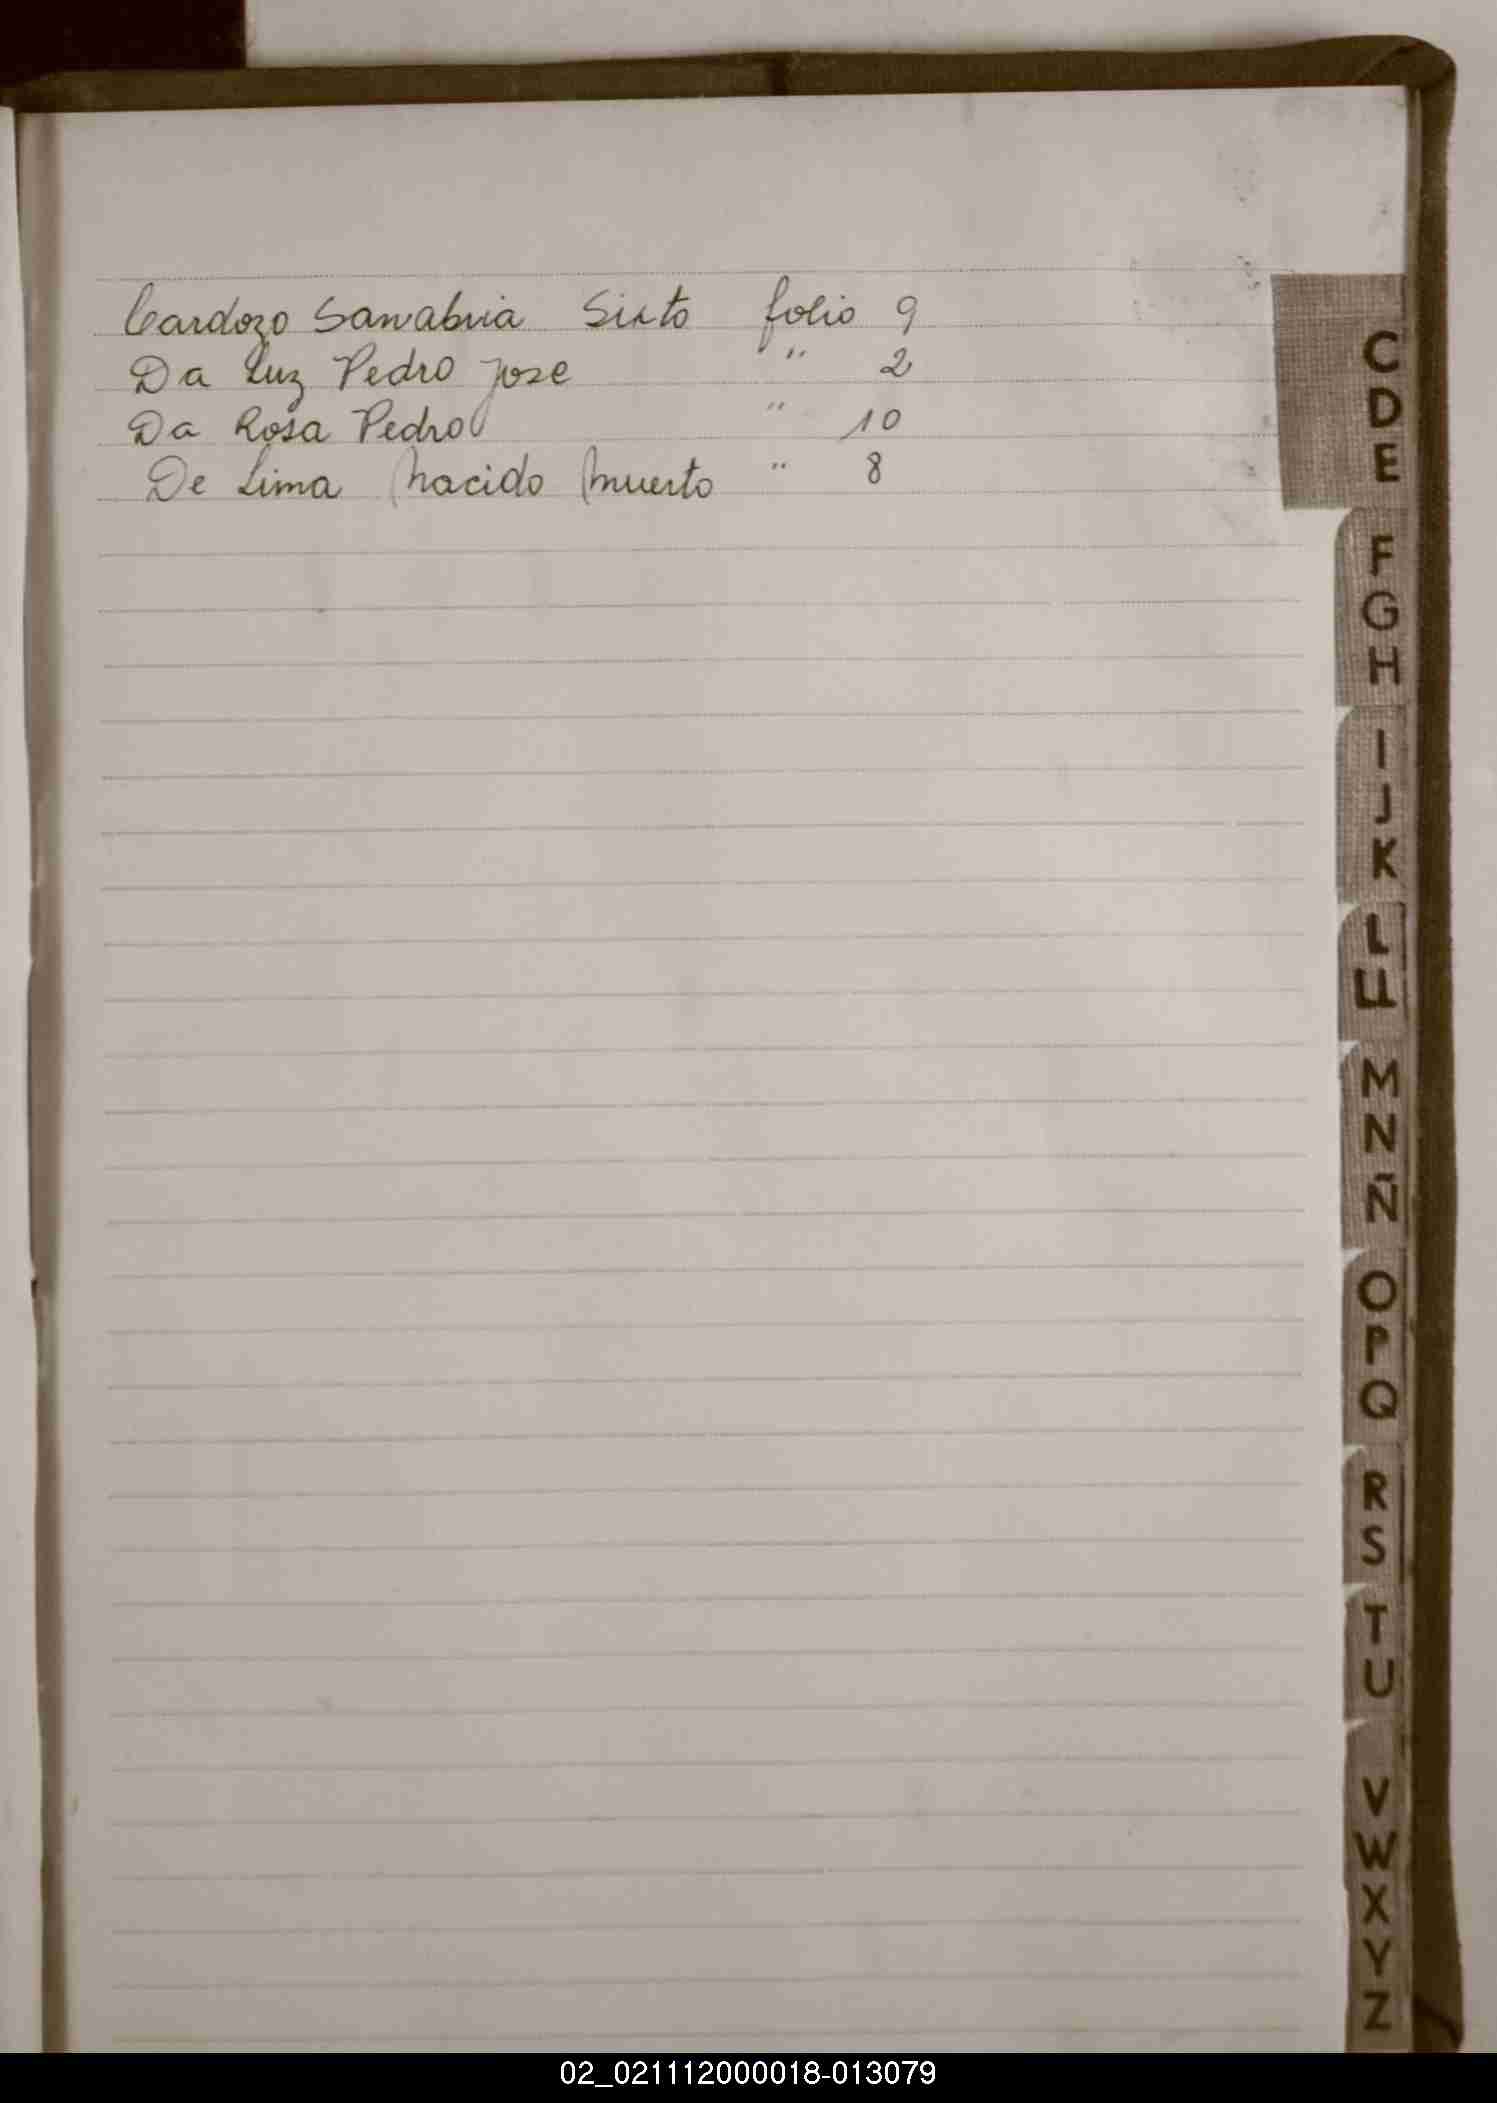 Cardozo Sanabria Sixto folio 9
Da Luz Pedro Jose " 2
Da Rosa Pedro " 10
De Lima Nacido Muerto " 8
C
D
E
F
G
H
I
J
K
L
LL
M
N
Ñ
O
P
Q
R
S
T
U
V
W
X
Y
Z
02_021112000018-013079